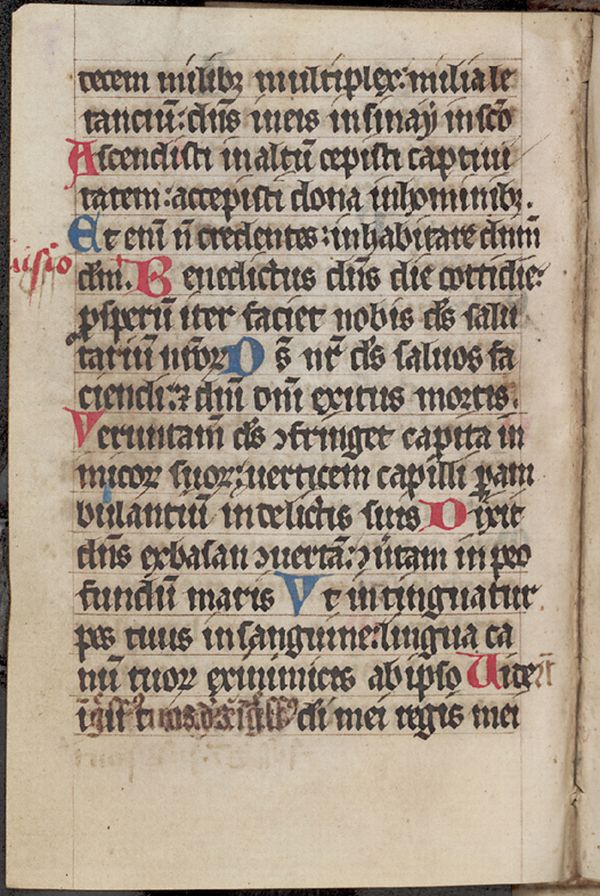 decem milibꝫ multiplex: milia le
tanciū: dn̄s in eis in sinaӱ in sc̄o
Ascendisti in altū cepisti captiui
tatem: accepisti dona in hominibꝫ.
Et eni̅ n̄ credentes: inhabitare dnm̄
diuisio
dm̄. Benedictus dn̄s die cottidie:
ꝓsperū iter faciet nobis ds̄ salu
tariū nr̄oꝝ Ds̄ nr̄ ds̄ saluos fa
ciendi: ⁊ dnī dnī exitus mortis.
Veruntam̄ ds̄ ↄfringet capita in
imicoꝝ suoꝝ: uerticem capilli ꝑam
bulantiū in delictis suis Dixit
dn̄s ex basan ↄuertā: ↄūtam in pro
fundū maris Vt intinguatur
pes tuus in sanguine: lingua ca
nū tuoꝝ ex inimicis ab ipso Uider̄t
di mei regis mei